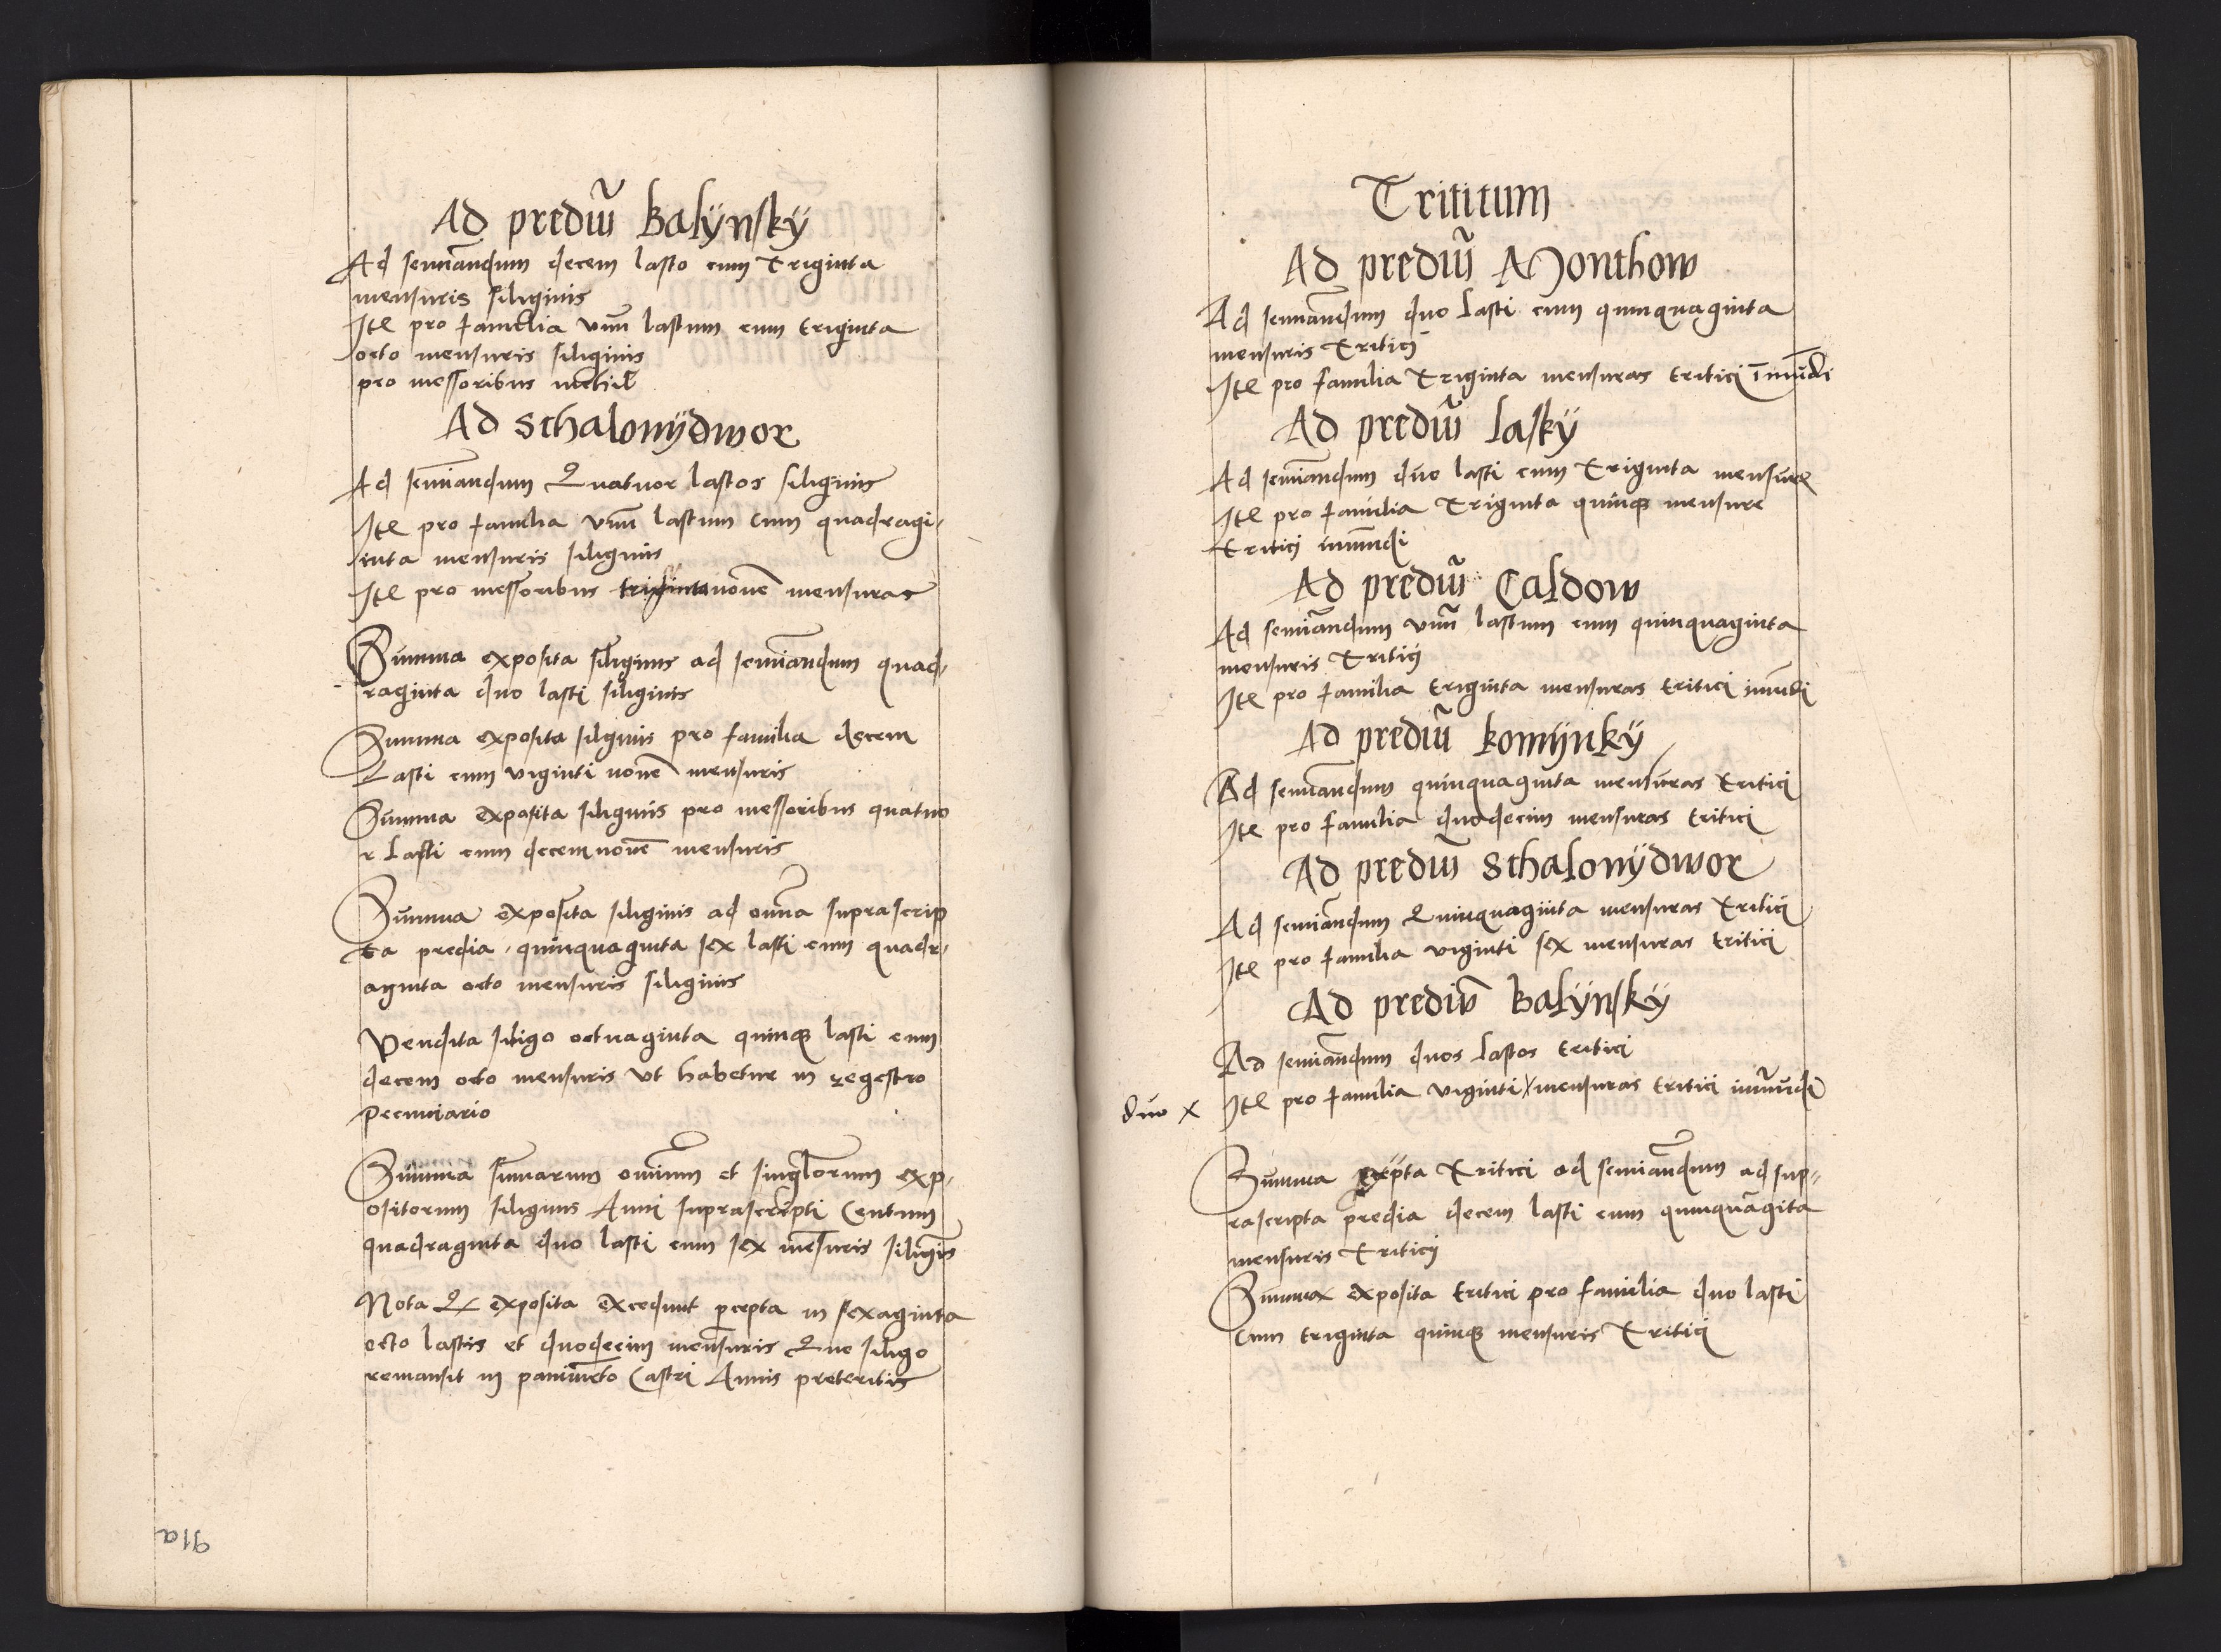 Adprediū Balÿnskÿ
Ad semīandum decem lasto cum Triginta
mensuris siliginis
Itē pro familia vnū lastum cum triginta
octo mensuris siliginis
pro messoribus nichil
Ad Schalonÿdwor
Ad semīandum Quatuor lastos siliginis
Itē pro familia vnū lastum cum quadragi-
inta mensuris siliginis
Itē pro messoribus nonē mensuras
Summa exposita siliginis ad semīandum quad-
raginta duo lasti siliginis
Summa exposita siliginis pro familia decem
Lasti cum viginti nonē mensuris
Summa exposita siliginis pro messoribus quatuo
r Lasti cum decemnonē mensuris
Summa exposita siliginis ad omīa suprascrip
ta predia quinquaginta sex lasti cum quadr-
aginta octo mensuris siliginis
Vendita siligo octuaginta quinq lasti cum
decem octo mensuris vt habetur in regestro
pecuniario
Summa sūmarum omnium et singlorum exp-
ositorum siliginis Anni suprascripti Centum
quadraginta duo lasti cum sex mēsuris siligīs
Nota Q exposita excedunt pcepta in sexaginta
octo lastis et duodecim mensuris Que siligo
remansit in Castri Annis preteritis
91a
Trititum
Ad prediū Monthow
Ad semīandum duo Lasti cum quinquaginta
mensuris Tritici
Itē pro familia Triginta mensuras tritici īmūdi
Ad prediū Laskÿ
Ad semīandum duo lasti cum Triginta mensure
Itē pro familia Triginta quinq mensure
Tritici inmūdi
Ad prediū Caldow
Ad semīandum vnū lastum cum quinquaginta
mensuris Tritici
Itē pro familia triginta mensuras tritici inmūdi
Ad prediū komÿnkÿ
Ad semīandum quinquaginta mensuras tritici
Itē pro familia duodecim mensuras tritici
Ad prediū Schalonÿdwor
Ad semīandum Quinquaginta mensuras tritici
Itē pro familia viginti sex mensuras tritici
Ad prediū Balÿnskÿ
Ad semīandum duos Lastos tritici
duo x Itē pro familia viginti x mensuras tritici inmūdi
Summa expta Tritici ad semīandum ad sup-
rascripta predia decem lasti cum quinquāgita
mensuris Tritici
Summa exposita tritici pro familia duo lasti
Cum triginta quinq mensuris Tritici